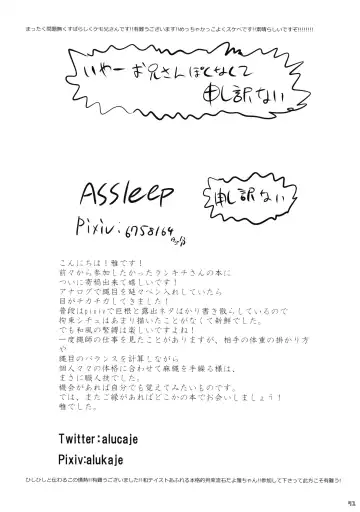 まったく問題無くすばらしくケモ兄さんです!!有難うございます!!めっちゃかっこよくスケベです!!素晴らしいですぞ!!!!!!!!
いやーお兄さんぽくなくて
申し訳ない
ASSleep
Pixiv:6758164
申し訳ない
こんにちは!雅です!
前々から参加したかったランキチさんの本に
ついに寄稿出来て嬉しいです!
アナログで縄目を延々ペン入れしていたら
目がチカチカしてきました!
普段はpixivで巨根と露出ネタばかり書き散らしているので
拘束シチュはあまり描いたことがなくて新鮮でした。
でも和風の緊縛は楽しいですよね!
一度縄師の仕事を見たことがありますが、相手の体重の掛かり方
や
縄目のバランスを計算しながら
個人々々の体格に合わせて麻縄を手繰る様は、
まさに職人技でした。
機会があれば自分でも覚えてみたいものです。
では、またご縁があればどこかの本でお会いしましょう!
雅でした。
Twitter:alucaje
Pixiv:alukaje
ひしひしと伝わるこの情時!!有難うございました!!和テイストあふれる本格的